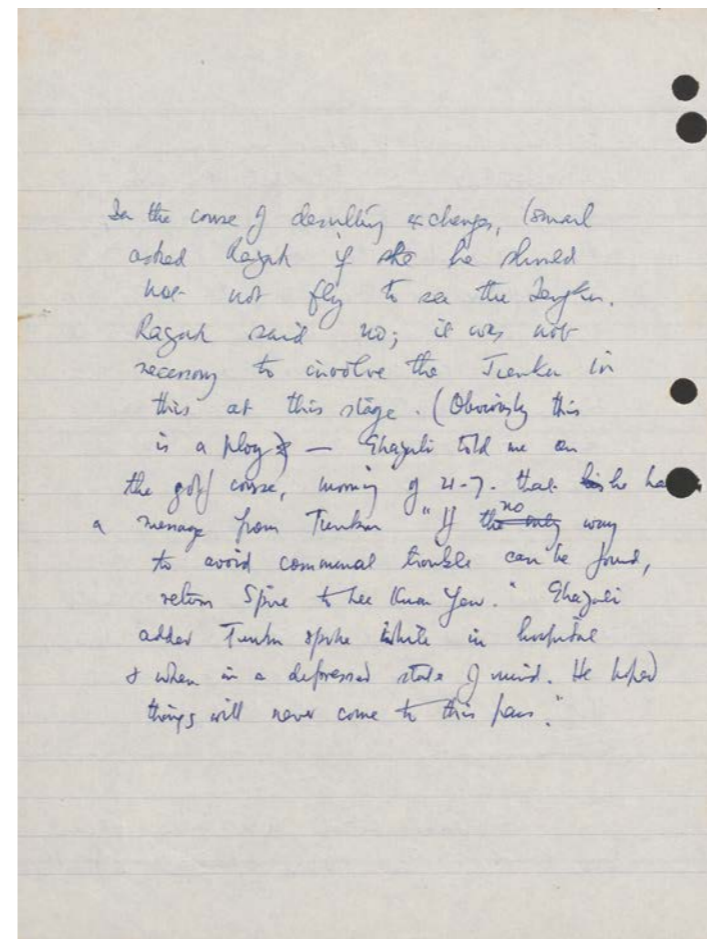 In the course of desultory exchanges, Ismail
asked Razak if she he should
not not fly to see the Tengku.
Razak said no; it was not
necessary to involve the Tunku in
this at this stage. (Obviously this
is a ploy) — Ghazali told me on
the golf course, morning of 21-7. that his he had
a message from Tunku "If the only no way
to avoid communal trouble can be found,
return S'pore to Lee Kuan Yew." Ghazali
added Tunku spoke while in hospital
& when in a depressed state of mind. He hoped
things will never come to this pass."